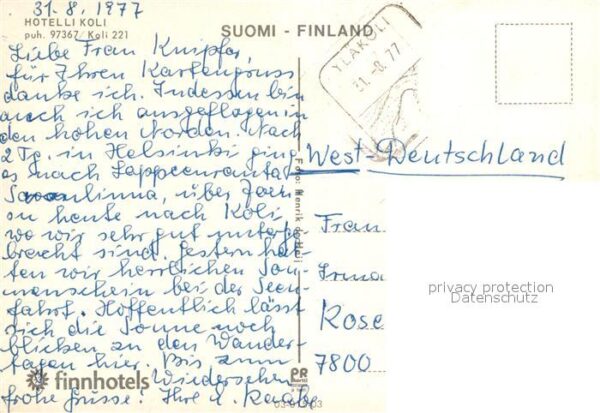 31.8.1977
HOTELLI KOLI
puh. 97367/Koli 221
SUOMI - FINLAND
YLÄKOLI
31.-8.77
Liebe Frau Knipfer,
für Ihren Kartengruss
danke ich. Indessen bin
auch ich ausgeflogen in
den hohen Norden. Nach
2 Tg. in Helsinki ging
es nach Lappeenranta,
Savonlinna, über Joen-
su heute nach Koli,
wo wir sehr gut unterge-
bracht sind. Gestern hat-
ten wir herrlichen Son-
nenschein bei der Seen-
fahrt. Hoffentlich lässt
sich die Sonne noch
blicken zu den Wander-
tagen hier. Bis zum
Wiedersehen
frohe Grüsse! Ihre
West-Deutschland
Frau
Irma
Rose
7800
Foto: Henrik
finnhotels
PR
privacy protection
Datenschutz